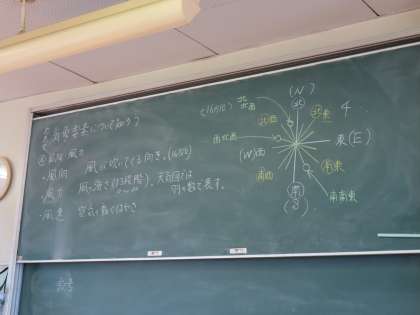 気象要素について知ろう
風向・風力
・風向 風が吹いてくる向き。(16方位)
・風力 風の強さ(13段階)。天気図では
羽の数で表す。
・風速 空気が動くはやさ
(N)
北
(16方位)
北北西
北西
北東
西北西
(W)西
東(E)
南西
南東
南南東
南
(S)
4